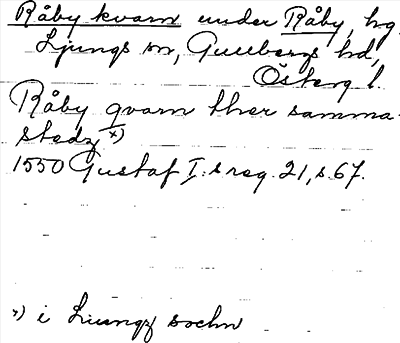 Råby kvarn under Råby, hg.
Ljungs sn, Gullbergs hd,
Österg l.
Råby qvarn ther samma-
stedz x)
1550 Gustaf I:s reg. 21, s. 67.
x) i Liungz sochn